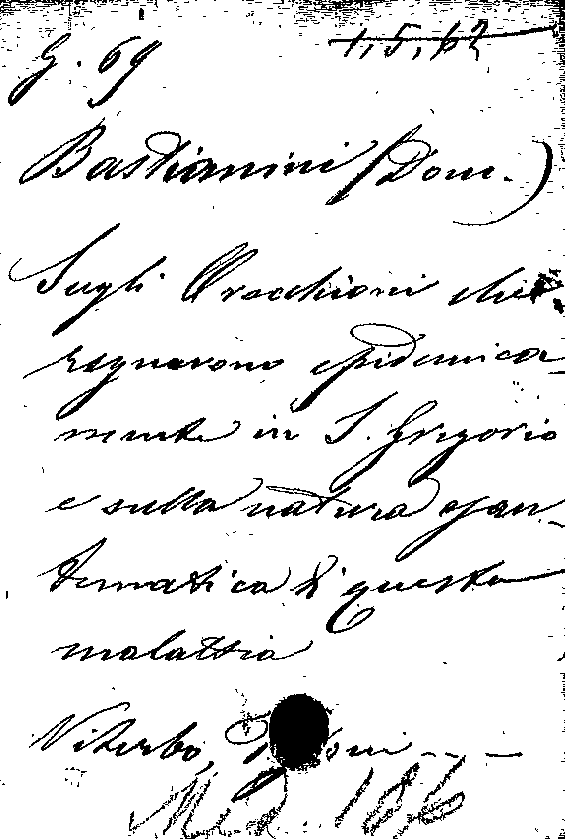 G. 69 1,5,62
Bastianini (Dom.)
Sugli Orecchioni che
regnarono epidemica-
mente in S. Gregorio
e sulla natura esan-
tematica di questa
malattia
Viterbo,
Med. 186